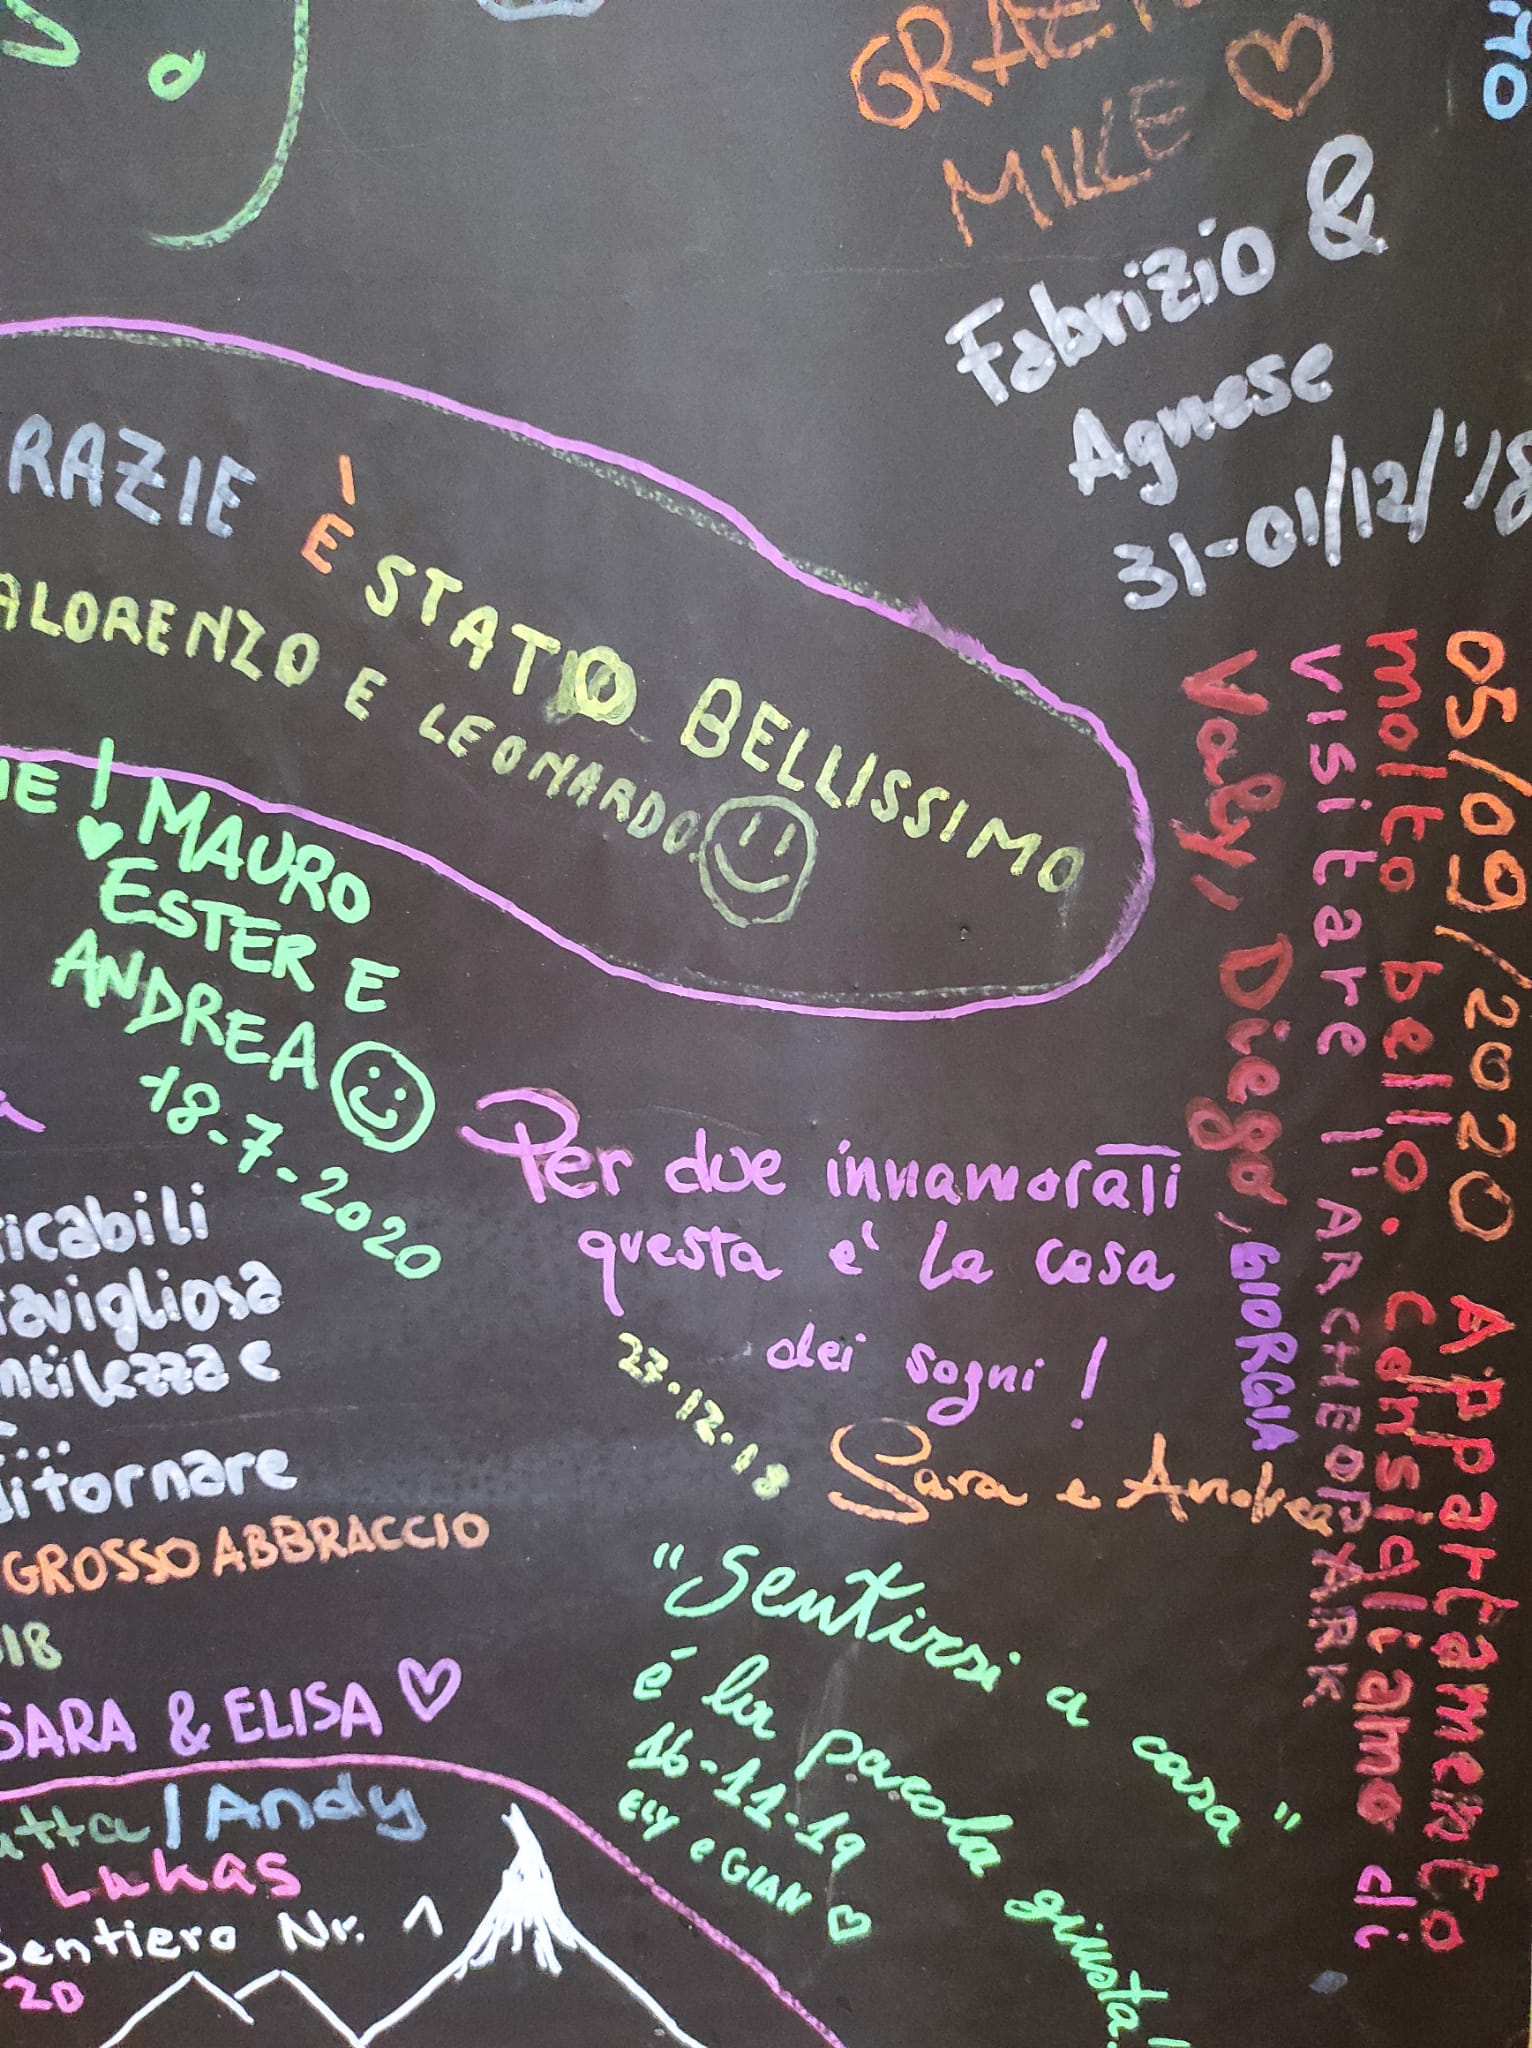 MILLE
Fabrizio &
Agnese
31-01/12/'18
RAZIE È STATO BELLISSIMO
LORENZO E LEONARDO
! MAURO
ESTER E
ANDREA
18-7-2020
05/09/2020 Appartamento
molto bello. Consigliamo di
visitare l'ARCHEOPARK
Valy, Diego, GIORGIA
Per due innamorati
questa e' la casa
dei sogni!
27.12.18
Sara e Andrea
icabili
avigliosa
ntilezza e
...
ditornare
GROSSO ABBRACCIO
18
SARA & ELISA
"Sentirsi a casa"
é la parola giusta!
16-11-19
ELY e GIAN
atta/Andy
Lukas
Sentiero Nr. 1
20